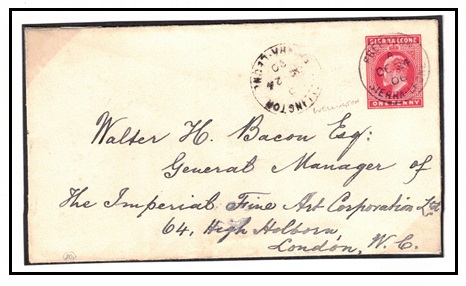 SIERRA LEONE
ONE PENNY
SIERRA LEONE
Wellington
Walter H. Bacon Esq:
General Manager of
The Imperial Fine Art Corporation Ltd
64, High Holborn,
London, W.C.